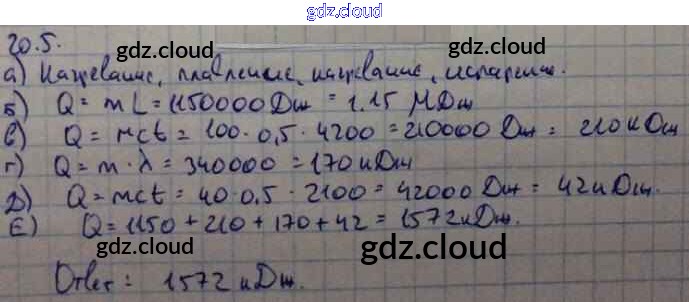 gdz.cloud
20.5.
gdz.cloud gdz.cloud
а) Нагревание, плавление, нагревание, испарение.
Б) Q = mL = 1150000 Дж = 1.15 МДж
gdz.cloud gdz.cloud
в) Q = mct = 100·0,5·4200 = 210000 Дж = 210 кДж
г) Q = m·λ = 340000 = 170 кДж
gdz.cloud gdz.cloud
Д) Q = mct = 40·0.5·2100 = 42000 Дж = 42 кДж.
Е) Q = 1150 + 210 + 170 + 42 = 1572 кДж.
gdz.cloud gdz.cloud
Ответ: 1572 кДж.
gdz.cloud